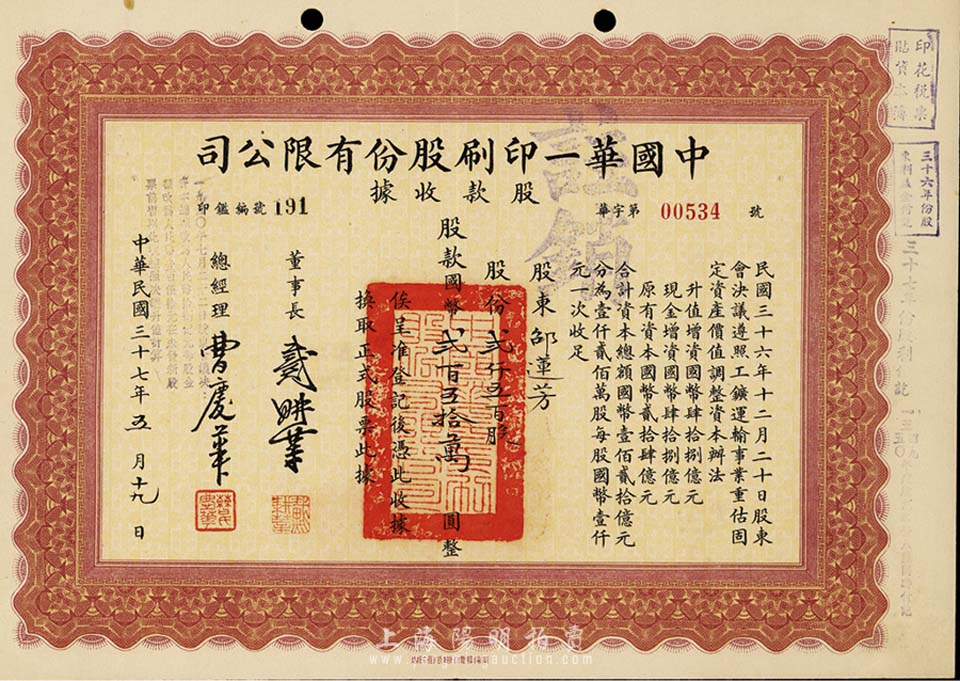 中國華一印刷股份有限公司
股款收據
華字第 00534 號
印鑑編號 191
民國三十六年十二月二十日股東
會決議遵照工鑛運輸事業重估固
定資產價值調整資本辦法
升值增資國幣肆拾捌億元
現金增資國幣肆拾捌億元
原有資本國幣貳拾肆億元
合計資本總額國幣壹佰貳拾億元
分為壹仟貳佰萬股每股國幣壹仟
元一次收足
股東 邵蓮芳
股份 貳仟五百股
股款國幣 貳百五拾萬 圓整
俟呈准登記後憑此收據
換取正式股票此據
董事長
總經理 曹慶華
中華民國三十七年五月十九日
註銷
印花稅票
三十六年份股
上海陽明拍賣